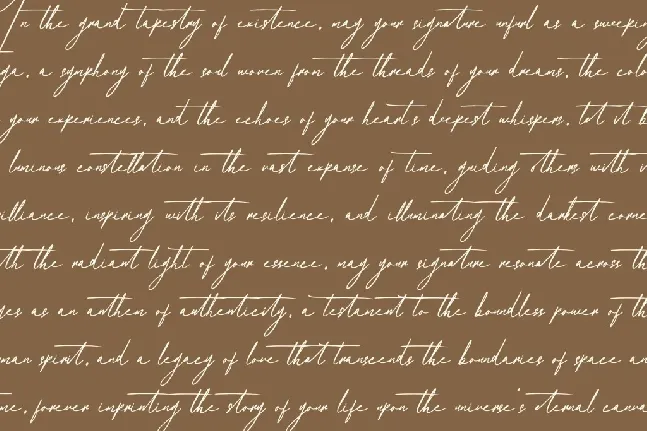 In the grand tapestry of existence, may your signature unfurl as a sweeping
ga, a symphony of the soul woven from the threads of your dreams, the colo
your experiences, and the echoes of your heart's deepest whispers. Let it b
luminous constellation in the vast expanse of time, guiding others with
illiance, inspiring with its resilience, and illuminating the darkest corne
th the radiant light of your essence, may your signature resonate across th
ges as an anthem of authenticity, a testament to the boundless power of th
man spirit, and a legacy of love that transcends the boundaries of space an
me, forever imprinting the story of your life upon the universe's eternal canva